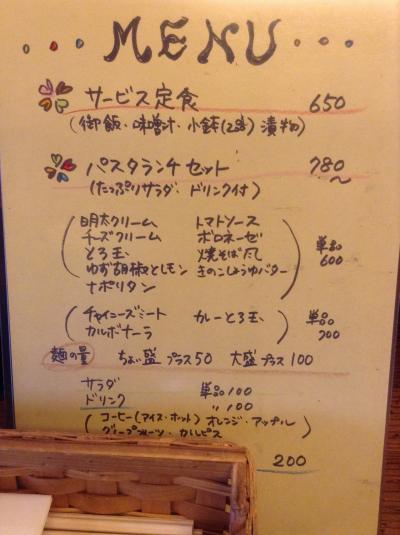 MENU
サービス定食 650
(御飯・味噌汁・小鉢(2品) 漬物)
パスタランチセット 780〜
(たっぷりサラダ・ドリンク付)
明太クリーム トマトソース
チーズクリーム ボロネーゼ
とろ玉 焼そば風
ゆず胡椒とレモン きのこしょうゆバター
ナポリタン
単品 600
チャイニーズミート カレーとろ玉
カルボナーラ
単品 700
麺の量 ちょい盛 プラス50 大盛プラス100
サラダ 単品100
ドリンク 〃 100
(コーヒー(アイス・ホット) オレンジ・アップル
グレープフルーツ・カルピス)
200